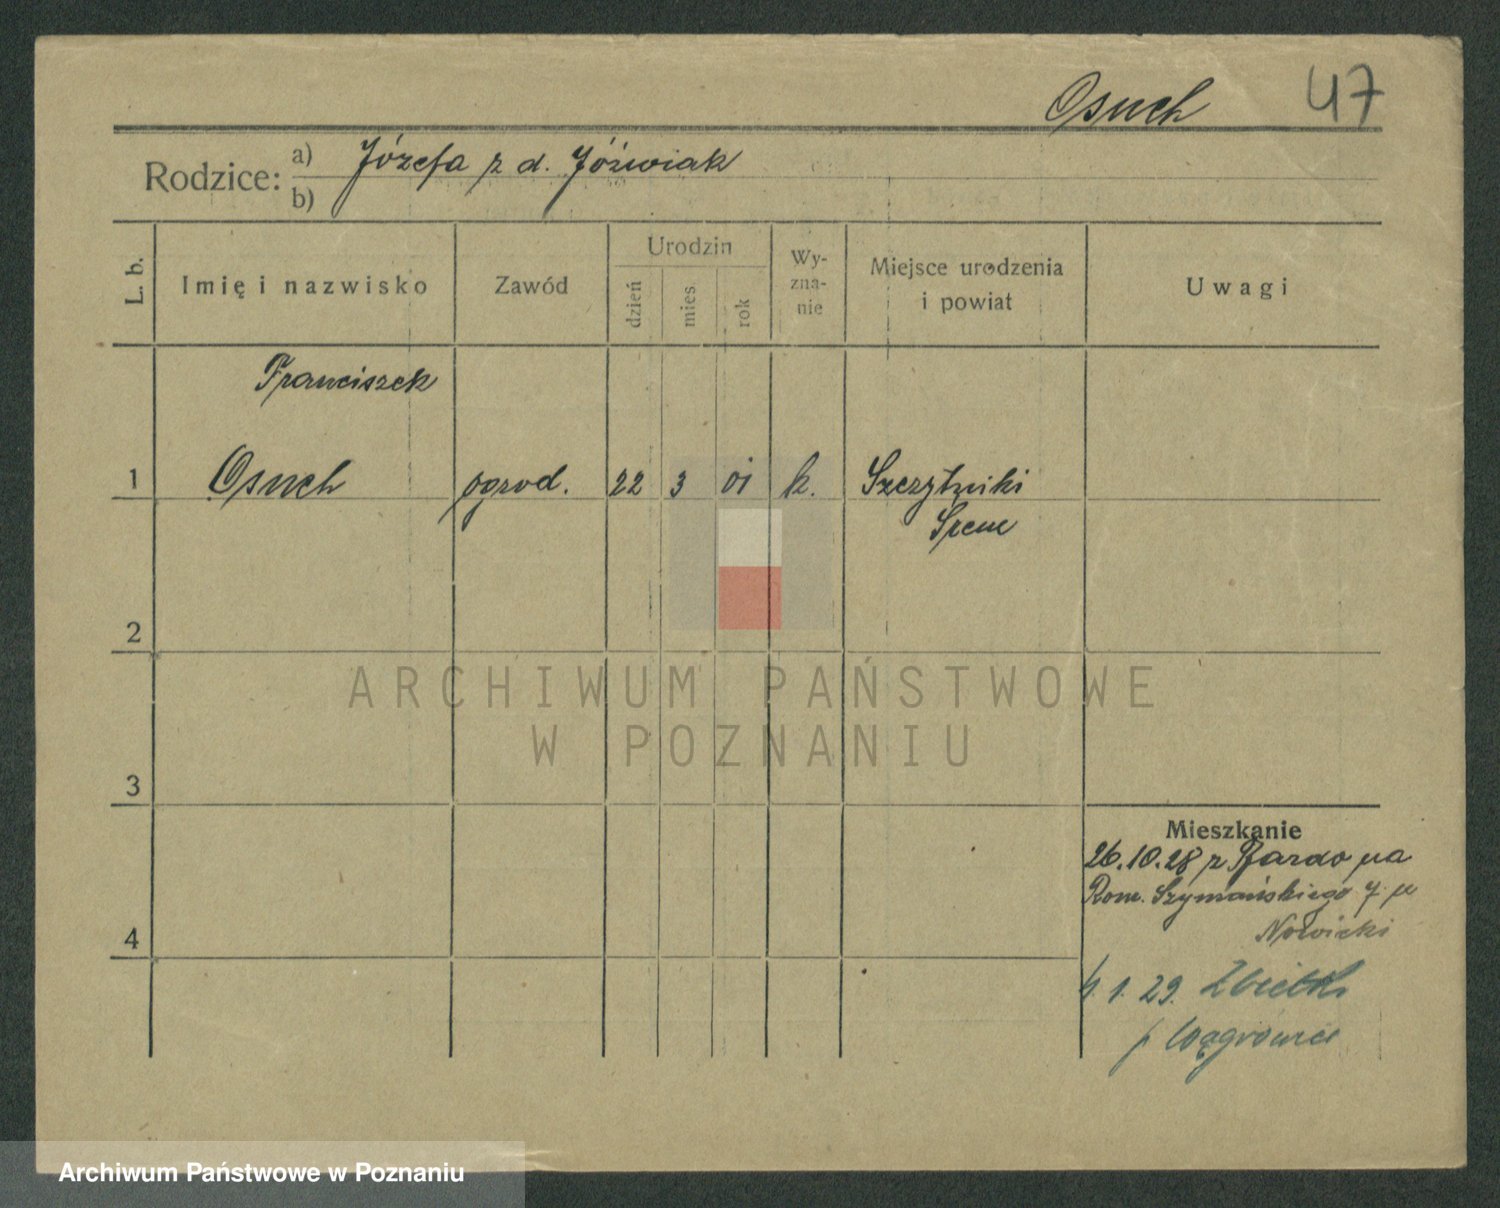 Osuch 47
Rodzice: a) Józefa z d. Jóźwiak
b)
L. b. Imię i nazwisko Zawód Urodzin dzień mies. rok Wy-zna-nie Miejsce urodzenia i powiat Uwagi
Franciszek
1 Osuch ogrod. 22 3 01 k. Szczytniki
Śrem
2
ARCHIWUM PAŃSTWOWE
W POZNANIU
3
Mieszkanie
26.10.28 z Bardo na
Rom. Szymańskiego 7 u
4 Nowicki
4.1.29. Zbietka
p Wągrowiec
Archiwum Państwowe w Poznaniu